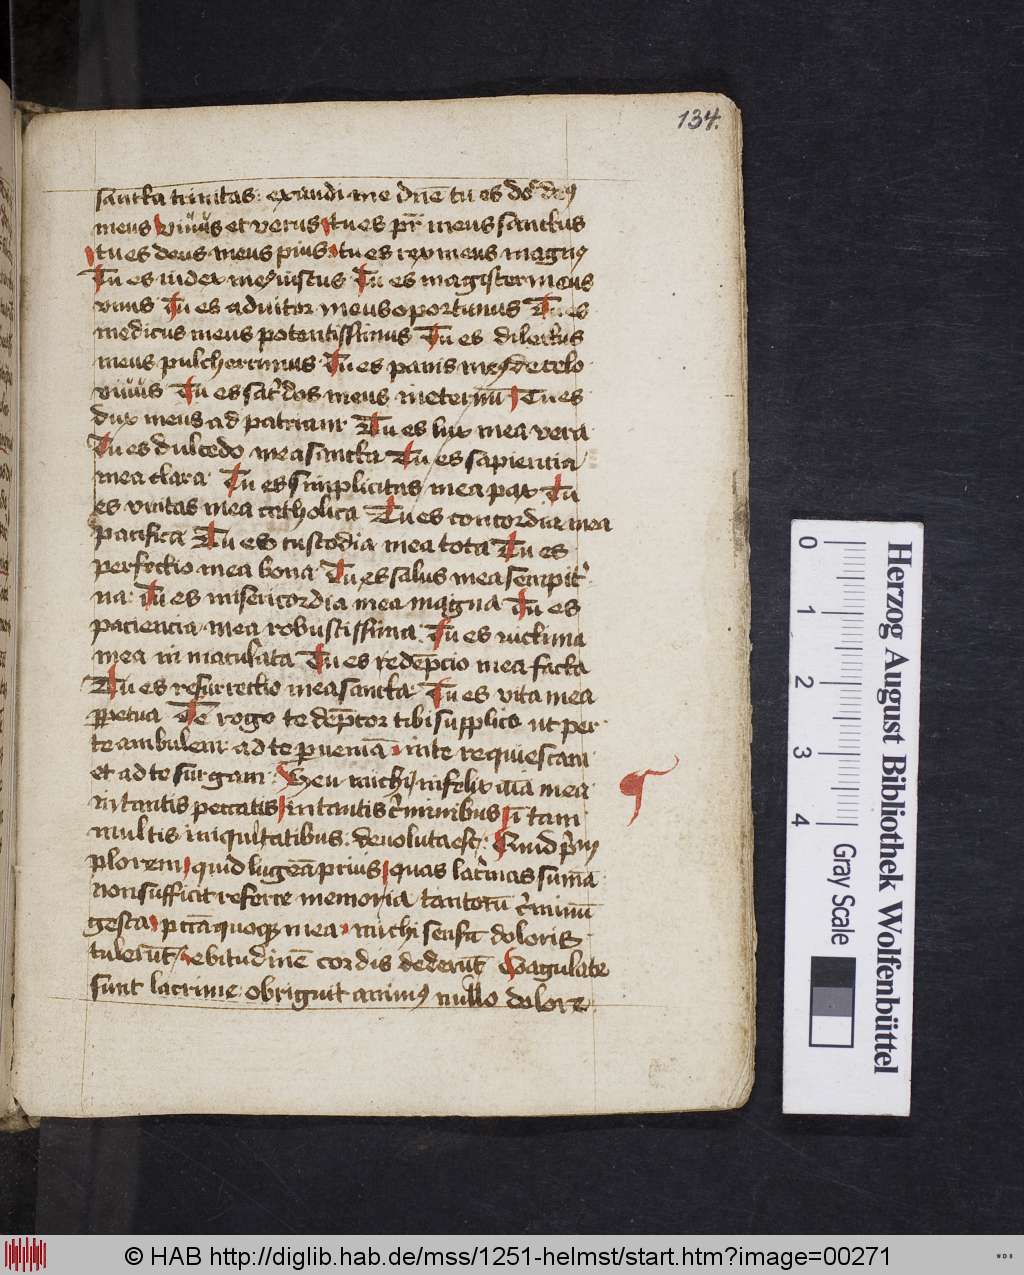 134.
sancta trinitas: exaudi me dn̄e tu es deꝰ
meus viuus et verus tu es pr̄ meus sanctus
tu es deus meus pius tu es rex meus magnꝰ
Tu es iudex meꝰ iustus Tu es magister meus
vnus Tu es adiutor meus oportunus Tu es
medicus meus potentissimus Tu es dilectus
meus pulcherrimus Tu es panis meꝰ de celo
viuus Tu es sac̓dos meus in eternū Tu es
dux meus ad patriam Tu es lux mea vera
Tu es dulcedo mea sancta Tu es sapientia
mea clara Tu es simplicitas mea pax Tu
es vnitas mea catholica Tu es concordia mea
pacifica Tu es custodia mea tota Tu es
perfectio mea bona Tu es salus mea sempit̓
na Tu es misericordia mea magna Tu es
paciencia mea robustissima Tu es victima
mea in maculata Tu es redēpcio mea facta
Tu es resurrectio mea sancta Tu es vita mea
ꝑpetua Te rogo te dep̄cor tibi supplico ut per
te ambulem ad te ꝑueniā in te requiescam
et ad te surgam. Heu michi infelix aīa mea
in tantis peccatis in tantis c̓minibus ī tam
multis iniquitatibus deuoluta est: Quid p̓m
plorem quid lugeā prius quas lac̓mas sumā
non sufficit referre memoria tantorū c̓minū
gesta pctā quoqꝫ mea michi sensū doloris
tulerūt ebitudinē cordis dederūt Coagulate
sunt lacrime obriguit animꝰ nullo dolore
Herzog August Bibliothek Wolfenbüttel
0 1 2 3 4 Gray Scale
© HAB http://diglib.hab.de/mss/1251-helmst/start.htm?image=00271